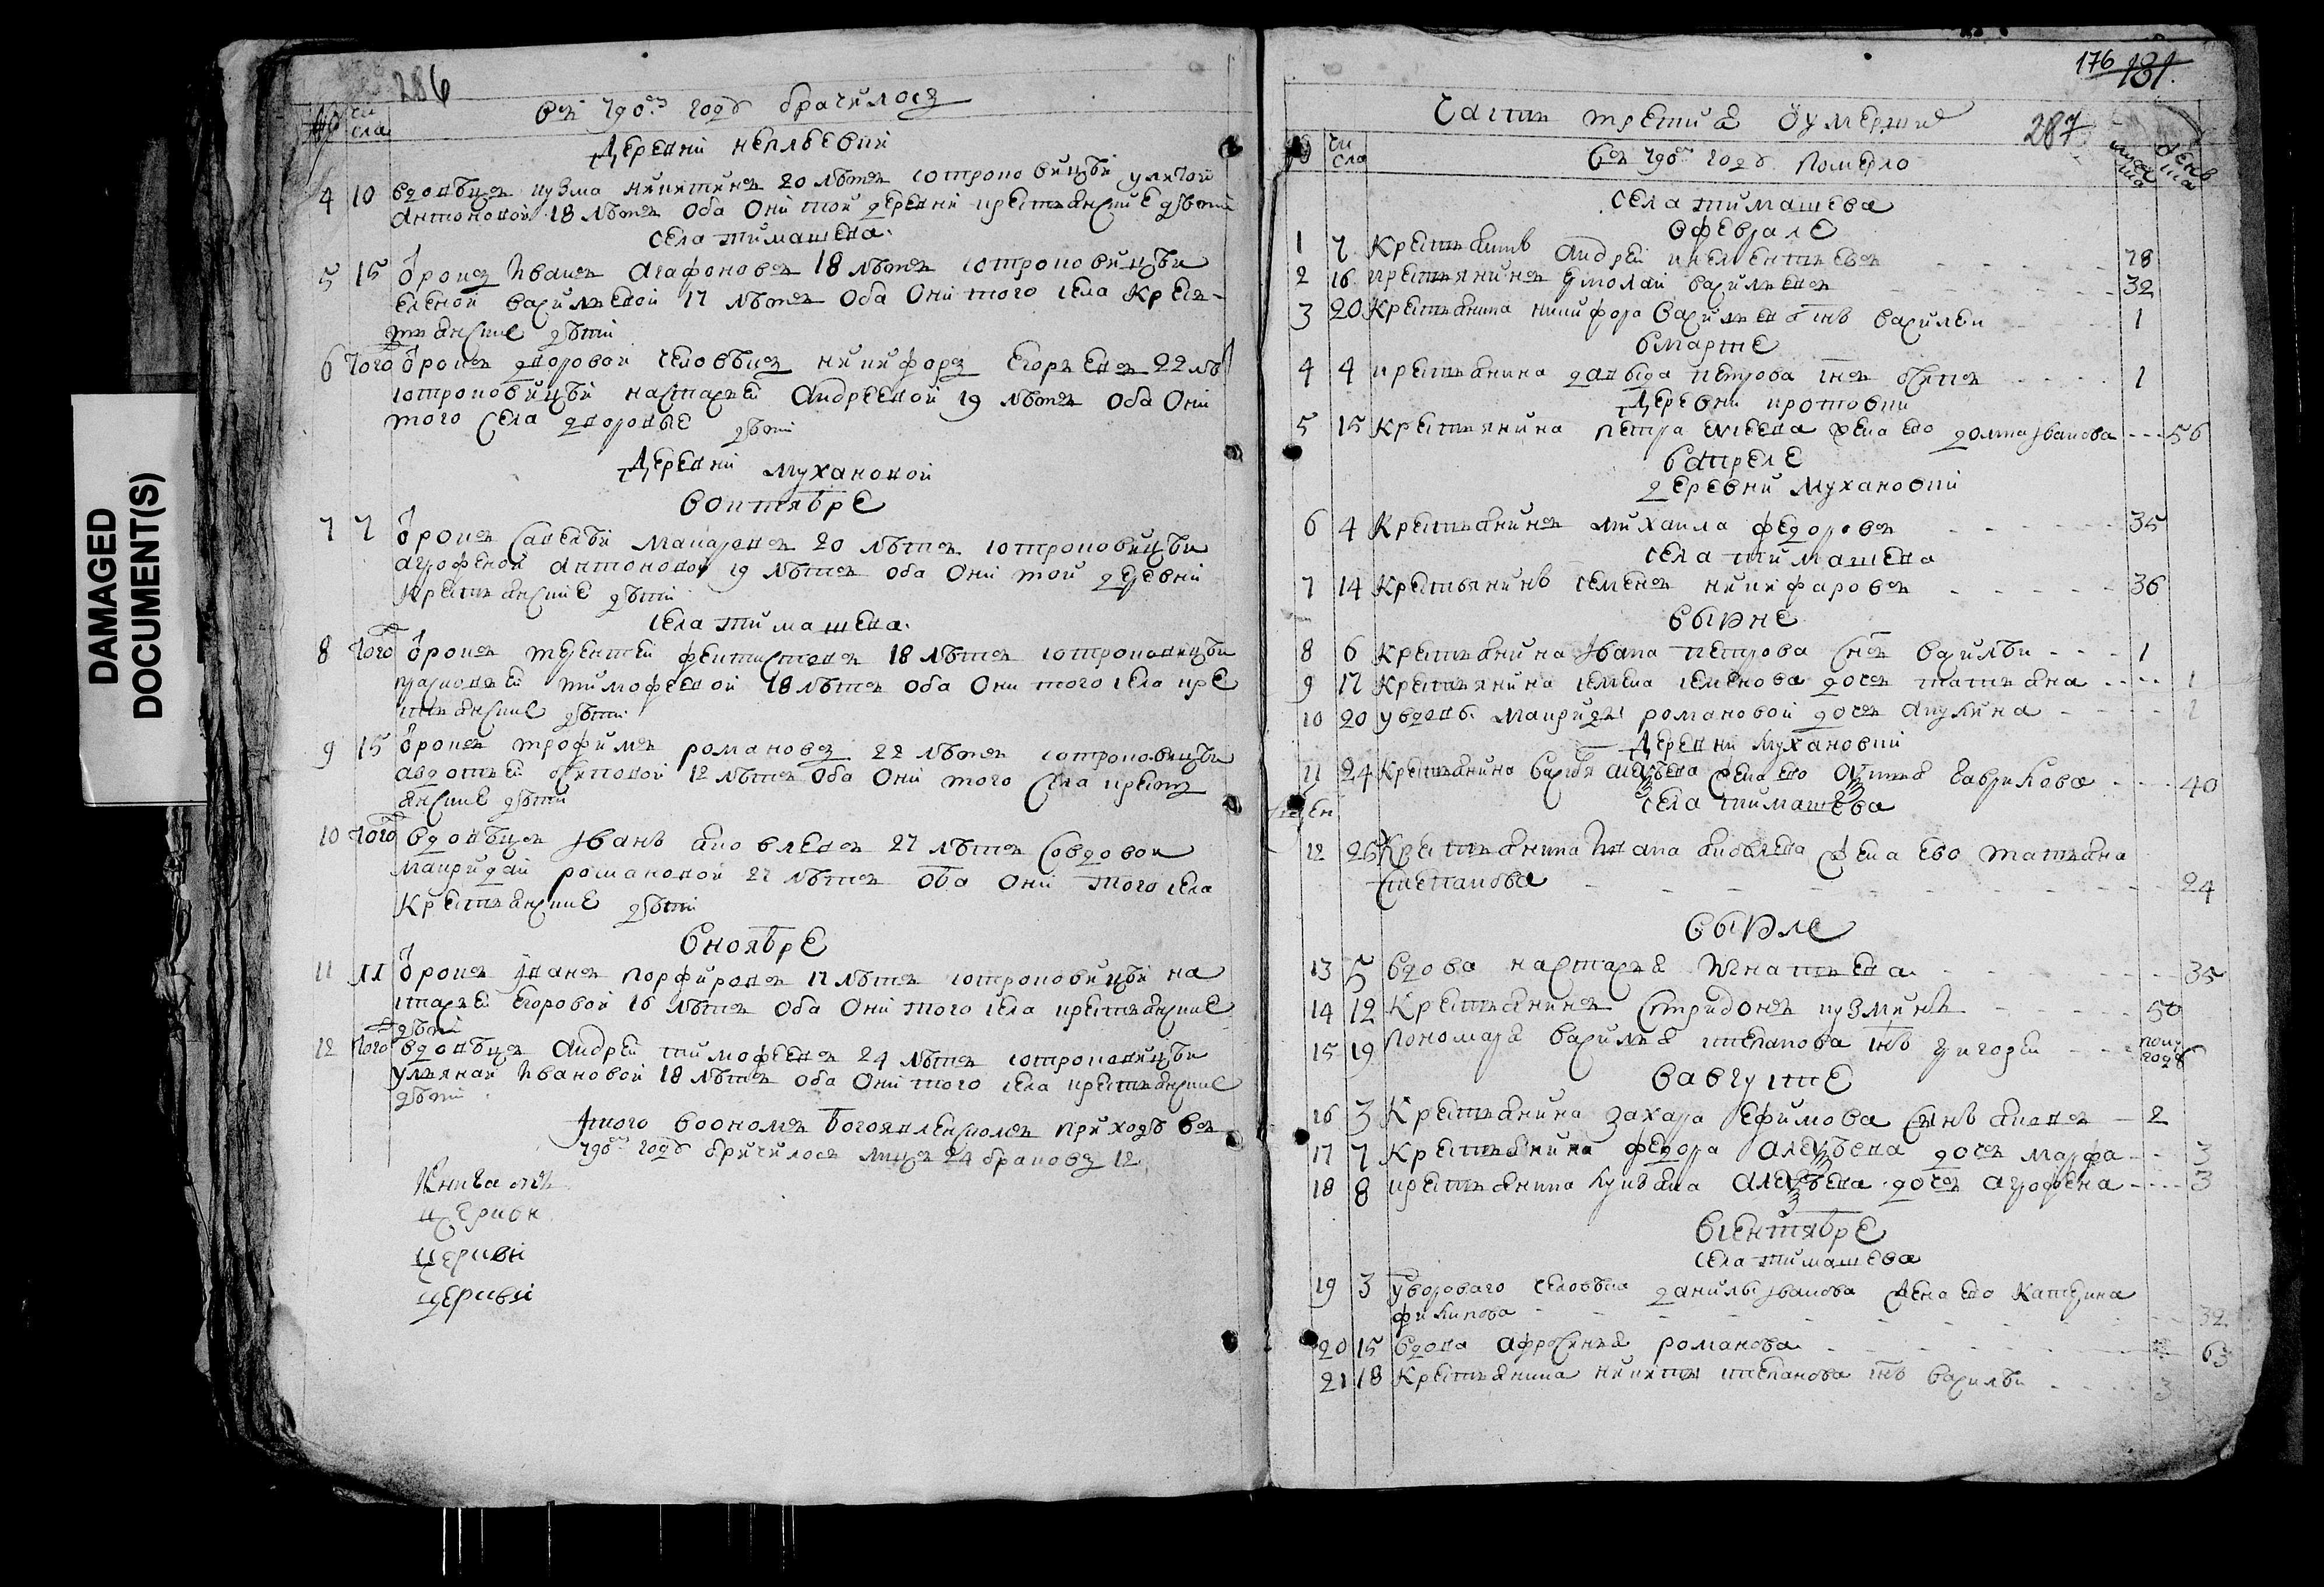 DAMAGED
DOCUMENT(S)
286
числа
въ 790м годѣ брачилося
Деревни
4 10 вдовѣцъ кузма никитинъ 20 лѣтъ сотроковицѣй
антоновой 18 лѣтъ оба они той деревни крестьянские дѣти
села тимашева
5 15 отрокъ иванъ агафоновъ 18 лѣтъ сотроковицѣи
еленой васильевой 17 лѣтъ оба они того села крес-
тьянские дѣти
6 того отрокъ дворовой человѣкъ никифоръ егорьевъ 22 лѣ
сотроковицѣй настасьей андреевой 19 лѣтъ оба они
того села дворовые дѣти
Деревни мухановой
воктябре
7 7 отрокъ савелѣй макаровъ 20 лѣтъ сотроковицѣи
агрофеной антоновой 19 лѣтъ оба они той деревни
крестьянские дѣти
села тимашева
8 того отрокъ терентей феитистовъ 18 лѣтъ сотроковицѣи
прасковьей тимофеевой 18 лѣтъ оба они того села кре
стьянские дѣти
9 15 отрокъ трофимъ романовъ 22 лѣтъ сотроковицѣи
авдотьей осиповой 17 лѣтъ оба они того села крестъ
янские дѣти
10 того вдовѣцъ иванъ яковлевъ 27 лѣтъ совдовой
романовой 27 лѣтъ оба они того села
крестьянские дѣти
вноябре
11 11 отрокъ иванъ порфировъ 17 лѣтъ сотроковицѣй на
стасьей егоровой 16 лѣтъ оба они того села крестьянские
дѣти
12 того вдовѣцъ андрей тимофеевъ 24 лѣтъ сотроковицѣи
ульяной ивановой 18 лѣтъ оба они того села крестьянские
дѣти
итого воономъ богоявленскомъ приходѣ въ
790м годѣ брачилось лицъ 24 браковъ 12
книга
церкви
церкви
церкви
176 181
287
часть третия оумершие
числа
въ 790м годѣ померло
села тимашева
вфеврале
1 7 крестьянинъ андрей клементьевъ 78
2 16 крестьянинъ ермолай васильевъ 32
3 20 крестьянина никифора васильева снъ василеи 1
вмарте
4 4 крестьянина давыда петрова снъ осипъ 1
Деревни кротовки
5 15 крестьянина петра жена ево домна иванова 56
вапреле
деревни мухановки
6 4 крестьянинъ михаила федоровъ 35
села тимашева
7 14 крестьянинъ семенъ никифаровъ 36
выюне
8 6 крестьянина ивана петрова снъ василѣи 1
9 17 крестьянина семена семенова дочь татьяна 1
10 20 увдовы романовой дочь акулина 1
Деревни мухановки
11 24 крестьянина василья алексѣева жена ево гаврилова 40
села тимашева
12 26 крестьянина ивана яковлева жена ево татьяна
степанова 24
выюле
13 5 вдова настасья игнатьева 35
14 12 крестьянинъ спридонъ кузминъ 50
15 19 пономаря василья степанова снъ григорей пол
года
вавгусте
16 3 крестьянина захара ефимова сынъ яковъ 2
17 7 крестьянина федора алексѣева дочь марфа 3
18 8 крестьянина алексѣева дочь агрофена 3
всентябре
села тимашева
19 3 удворового человѣка данилы иванова жена ево катерина
филипова 32
20 15 вдова афросинья романова 63
21 18 крестьянина никиты степанова снъ василѣи 3